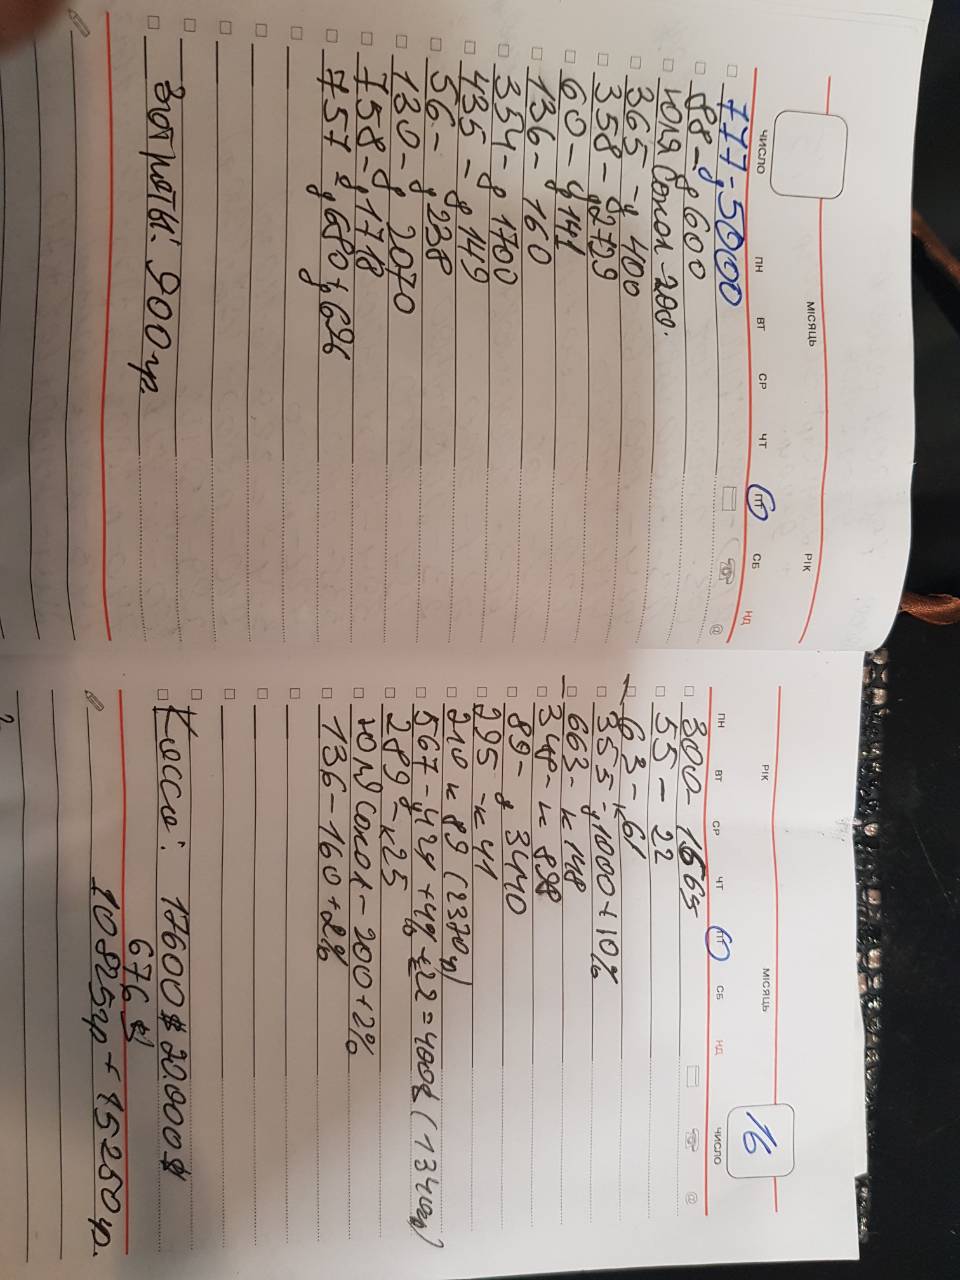 МІСЯЦЬ РІК
ЧИСЛО ПН ВТ СР ЧТ ПТ СБ НД
777-д 5000
88-д 600
Юля Сокол -200.
365 -д 400
358 - д 2729
60 - д 141
136 - 160
354 - д 1700
435 - д 149
56 - д 238
130 - д 2070
758 - д 1718
757 - д 680 + 696
Затраты: 900гр.
РІК МІСЯЦЬ
ПН ВТ СР ЧТ ПТ СБ НД ЧИСЛО
16
300 - 1665
55 - 22
63 - к 61
355 - д 1000 + 10%
663 - к 148
348 - к 898
89 - д 3440
295 - к 41
210 к 89 (2370гр)
567 - 474 + 4% + 22 = 400$ (1340гр)
289 - к 25
Юля Сокол - 200 + 2%
136 - 160 + 2%
Касса: 17600$ 20.000$
676$
10825гр + 15250гр.